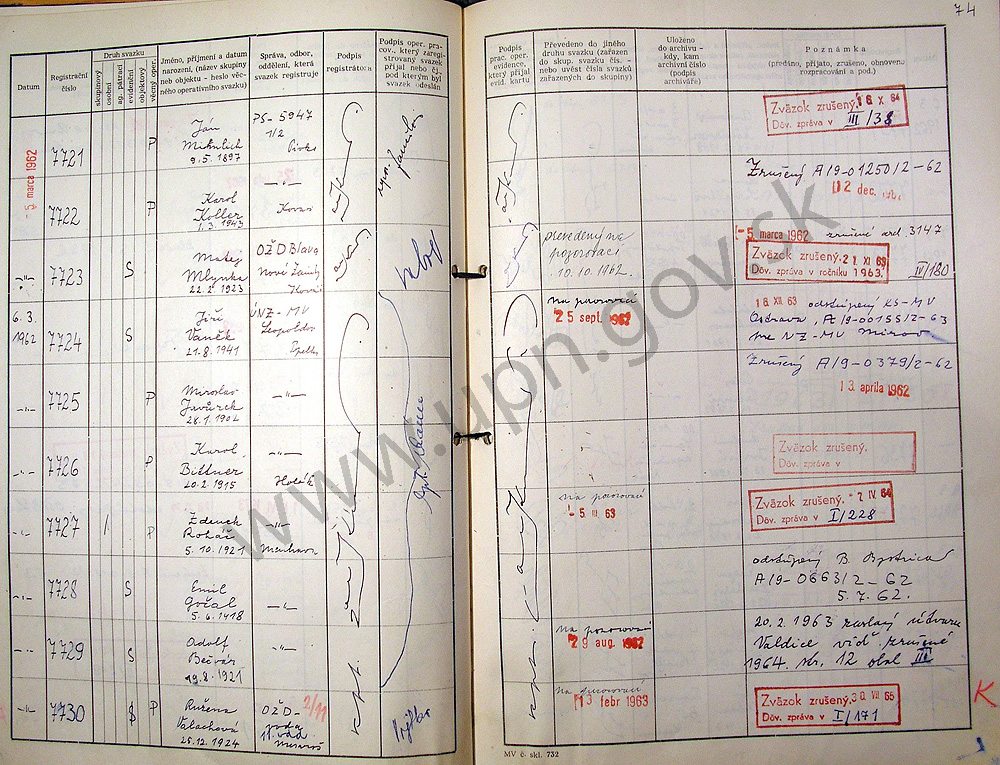 74
Datum
Registrační
číslo
Druh svazku
skupinový
osobní
ag. pátrací
evidenční
objektový
věcný oper.
Jméno, příjmení a datum
narození, (název skupiny
neb objektu - heslo věc-
ného operativního svazku)
Správa, odbor,
oddělení, která
svazek registruje
Podpis
registrátora
Podpis oper. pra-
cov., který zareg-
istroval svazek
přijal nebo čj.,
pod kterým byl
svazek odeslán
Podpis
prac. oper.
evidence,
který přijal
evid. kartu
Převedeno do jiného
druhu svazku (zařazen
do skup. svazku čís. -
nebo uvést čísla svazků
zařazených do skupiny)
Uloženo
do archivu -
kdy, kam
archivní číslo
(podpis
archiváře)
Poznámka
(předáno, přijato, zrušeno, obnoveno
rozpracování a pod.)
- 5. marca 1962
7721
P
Ján
9. 5. 1897
PS - 5947
1/2
Zväzok zrušený. 16 X 64
Dôv. zpráva v III/38
7722
P
Karol
Koller
1. 3. 1943
-"-
Kovac
Zrušený A/9-01250/2-62
12 dec. 1962
-"-
7723
S
Matej
Mlynka
22. 2. 1923
OŽD Blava
Nové Zámky
Kováč
prevedený na
pozorovací
10. 10. 1962.
- 5. marca 1962 zrušené arch. 3147
Zväzok zrušený. 21 XI 63
Dôv. zpráva v ročníku 1963. IV/180
6. 3.
1962
7724
S
Jiří
Vaněk
21. 8. 1941
ÚNZ - MV
Leopoldov
na pozorovací
25 sept. 1962
18 XII. 63 odstúpený KS-MV
Ostrava, A/9-00155/2-63
pre NZ-MV Mírov
-"-
7725
P
Miroslav
Javůrek
28. 1. 1902
-"-
Zrušený A/9-0379/2-62
13 apríla 1962
-"-
7726
P
Karol
Bittner
20. 2. 1915
-"-
Holák
Zväzok zrušený.
Dôv. zpráva v
-"-
7727
P
Zdenek
Rohác
5. 10. 1921
-"-
na pozorovací
- 5. III. 63
Zväzok zrušený. - 7 IV. 64
Dôv. zpráva v I/228
-"-
7728
S
Emil
Gočal
5. 6. 1918
-"-
odstúpený B. Bystrica
A/9-0663/2-62
5. 7. 62.
-"-
7729
S
Adolf
Bečvár
19. 8. 1921
-"-
na pozorovací
29 aug. 1962
20. 2. 1963 zaslaný útvaru
Valdice viď zrušené
1964. str. 12 obal III
-"-
7730
S
P
Ružena
Valachová
25. 12. 1924
OŽD-
2/11
na pozorovací
13 febr 1963
Zväzok zrušený. 30 VII. 65
Dôv. zpráva v I/171
K
MV č. skl. 732
www.upn.gov.sk